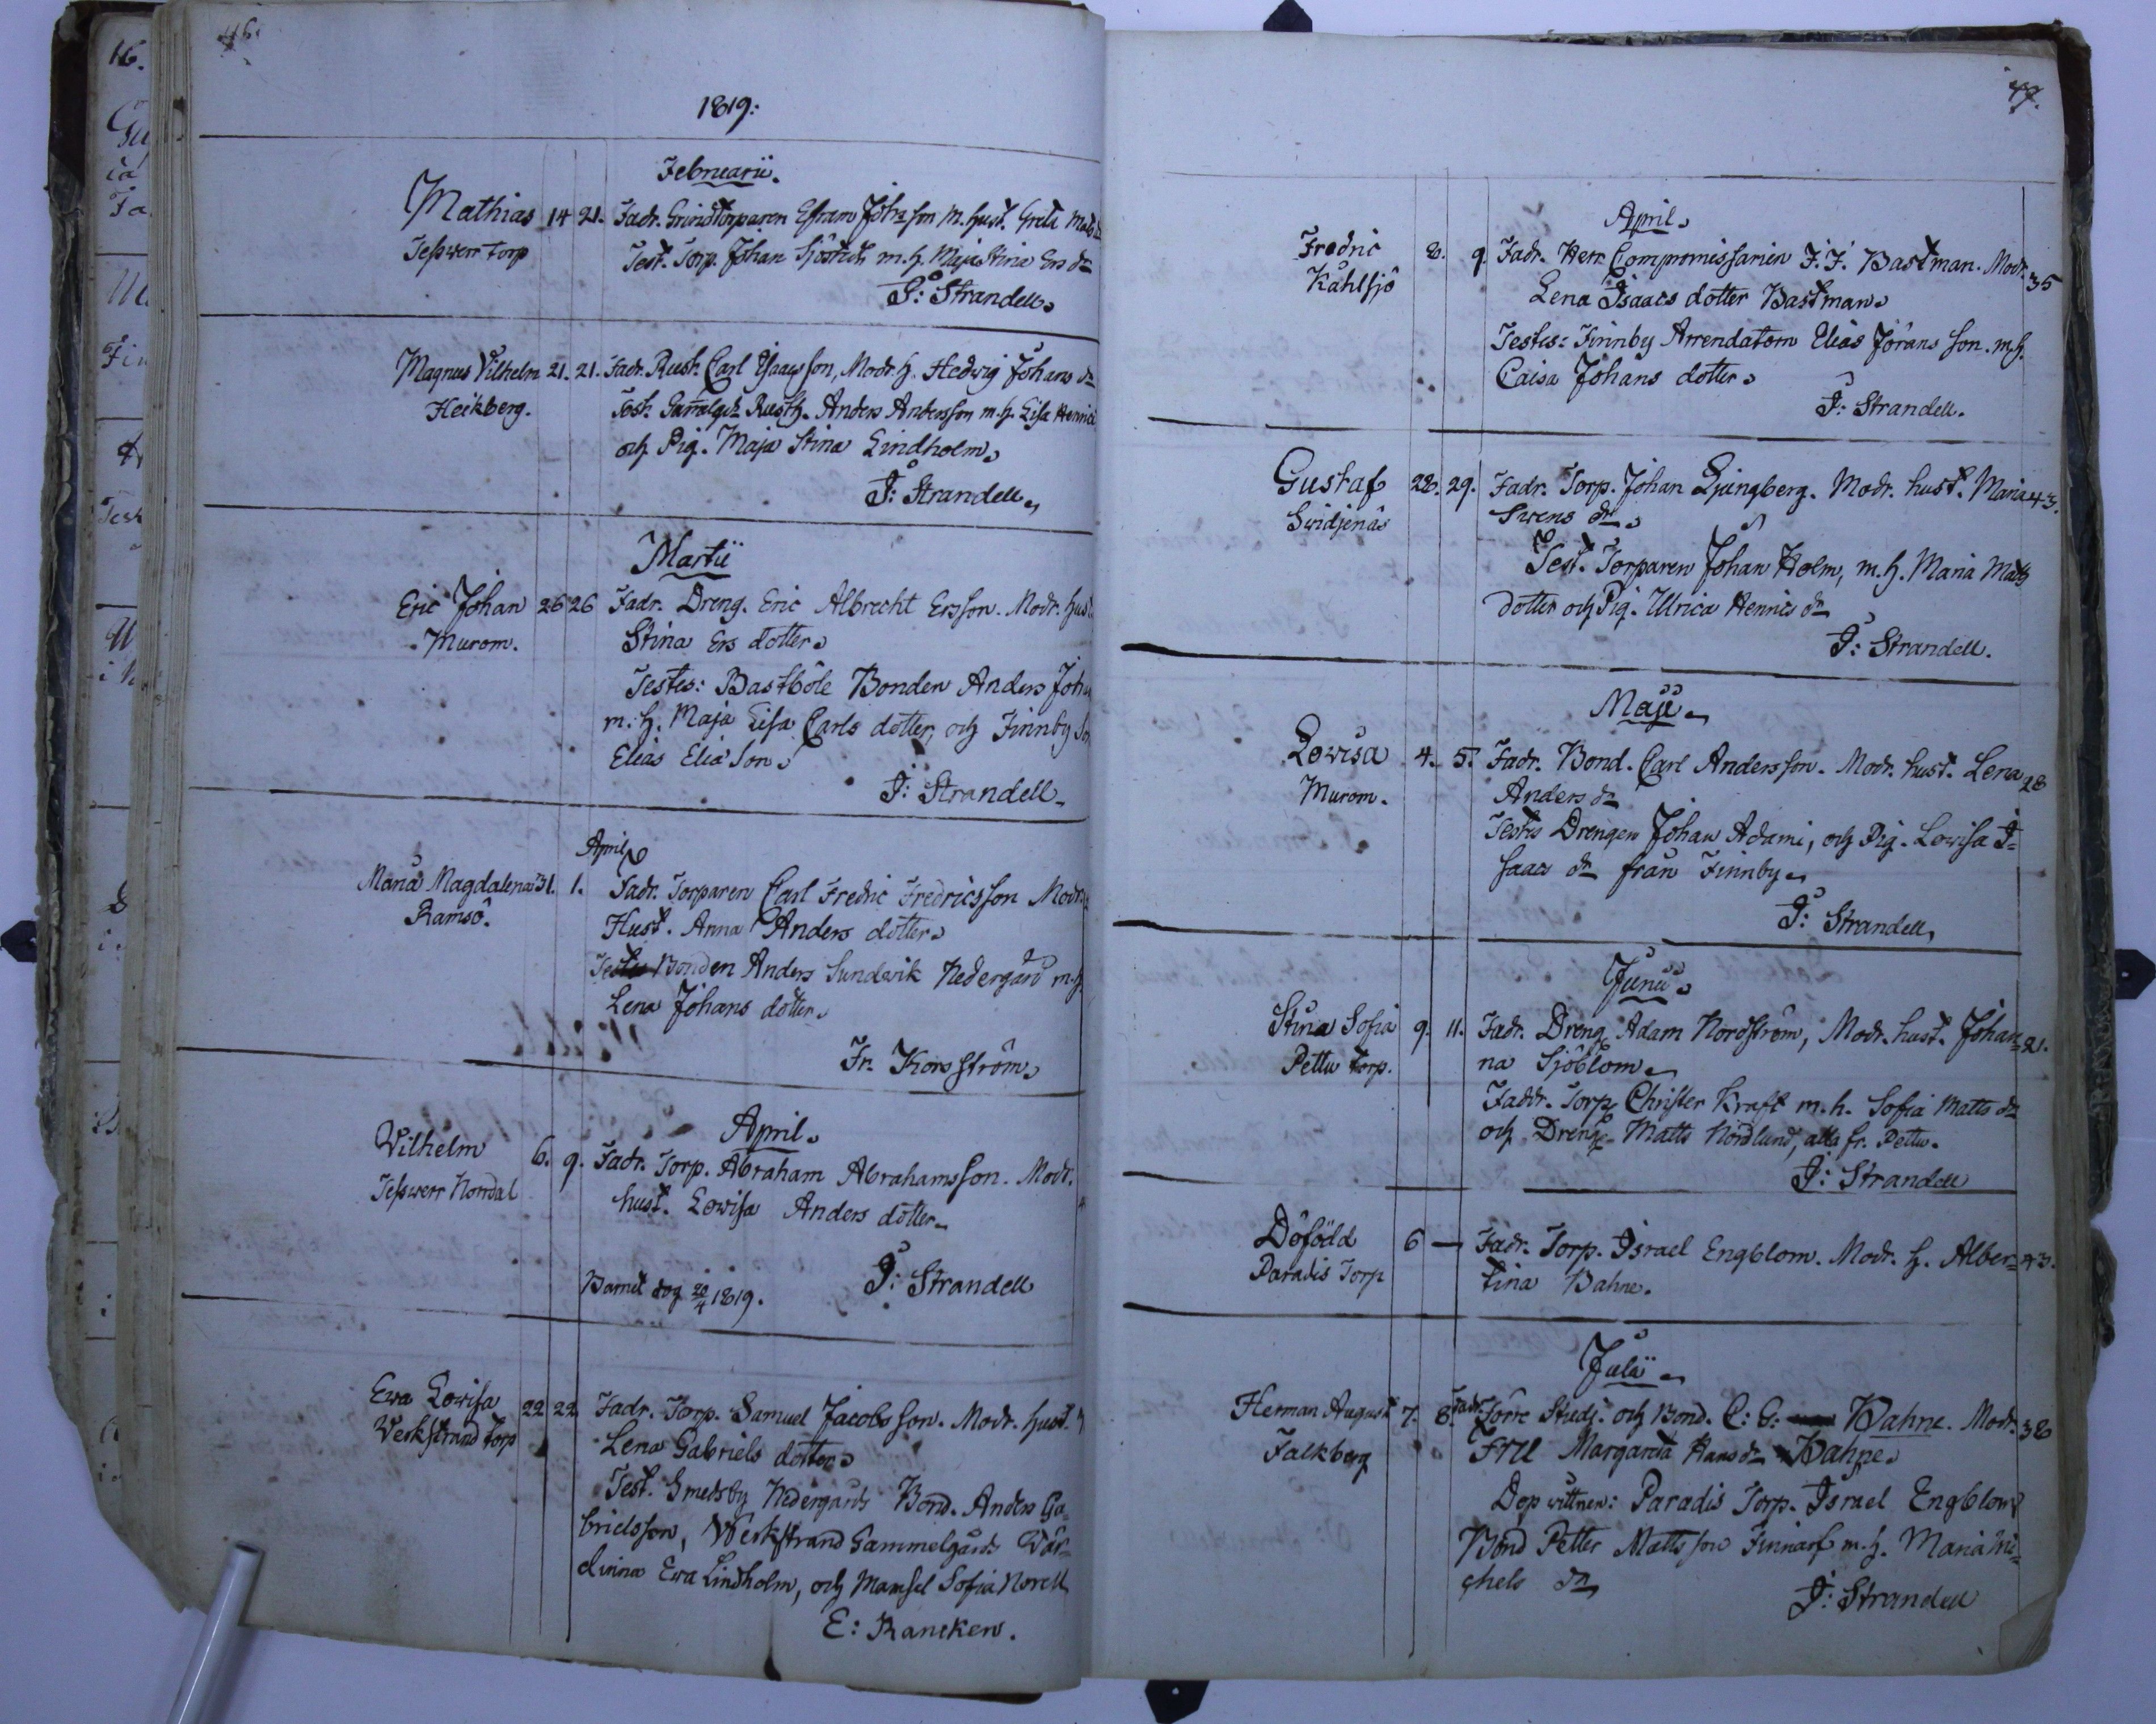 46.
1819:
Februarii.
Mathias 14 21. Fadr. Grindtorparen Efram Johsson m. hust. Greta Mats dr
Teßwerr torp Test. Torp. Johan m. h. Maja Stina Ers dr
J: Strandell.
Magnus Vilhelm 21. 21. Fadr. Rusth. Carl Isaacsson, Modr. h. Hedwig Johans dr
Heikberg. Test. Rusth. Anders Andersson m. h. Lisa Henrics
och Pig. Maja Stina Lindholm.
J: Strandell.
Martii
Eric Johan 26 26 Fadr. Dreng. Eric Albrecht Ersson. Modr. hust.
Murom. Stina Ers dotter.
Testes: Bastböle Bonden Anders Joh
m. h. Maja Lisa Carls dotter, och Finnby
Elias Elia Son.
J: Strandell.
April
Maria Magdalena 31. 1. Fadr. Torparen Carl Fredric Fredricsson Modr.
Ramsö. Hust. Anna Anders dotter.
Testes Bonden Anders Sundwik Nedergård m. h.
Lena Johans dotter.
Fr. Korsström.
April.
Wilhelm 6. 9. Fadr. Torp. Abraham Abrahamsson. Modr.
Teßwerr Norrdal hust. Lowisa Anders dotter.
J: Strandell
Barnet dog 20/4 1819.
Ewa Lowisa 22 22 Fadr. Torp. Samuel Jacobsson. Modr. hust.
Werkstrand torp Lena Gabriels dotter.
Test. Smedsby Nedergårds Bond. Anders Ga=
brielsson, Werkstrand Gammelgårds Wär=
dinna Ewa Lindholm, och Mamsel Sofia Norell
E: Rancken.
47.
April.
Fredric 8. 9. Fadr. Herr Compromissarien F. F. Bastman. Modr. 35
Kåhlsjö Lena Isaacs dotter Bastman.
Testes: Finnby Arrendatorn Elias Jörans Son. m. h.
Caisa Johans dotter.
J: Strandell.
Gustaf 28. 29. Fadr. Torp. Johan Ljungberg. Modr. hust. Maria 43.
Swidjenäs Swens dr.
Test. Torparen Johan Holm, m. h. Maria Matts
dotter och Pig. Ulrica Henrics dr
J: Strandell.
Maji
Lowisa 4. 5. Fadr. Bond. Carl Andersson. Modr. hust. Lena 28
Murom. Anders dr
Testes Drengen Johan Adami, och Pig. Lowisa I=
saacs dr från Finnby.
J: Strandell.
Junii.
Stina Sofia 9. 11. Fadr. Dreng. Adam Nordström, Modr. hust. Johan= 21.
Pettu torp. na Sjöblom.
Faddr. Torp. Christer Kraft m. h. Sofia Matts dr
och Dreng. Matts Nordlund, alla fr. Pettu.
J: Strandell
Döfödd 6 — Fadr. Torp. Israel Engblom. Modr. h. Alber= 43.
Paradis Torp tina Bahne.
Julii
Herman August 7. 8. Fadr. Förre Stud. och Bond. C: G: Bahne. Modr. 38
Falkberg FRU Margareta Hans dr Bahne.
Dop wittnen: Paradis Torp. Israel Engblom
Bond Petter Mattsson Finnarf m. h. Maria Mi=
chels dr
J: Strandell